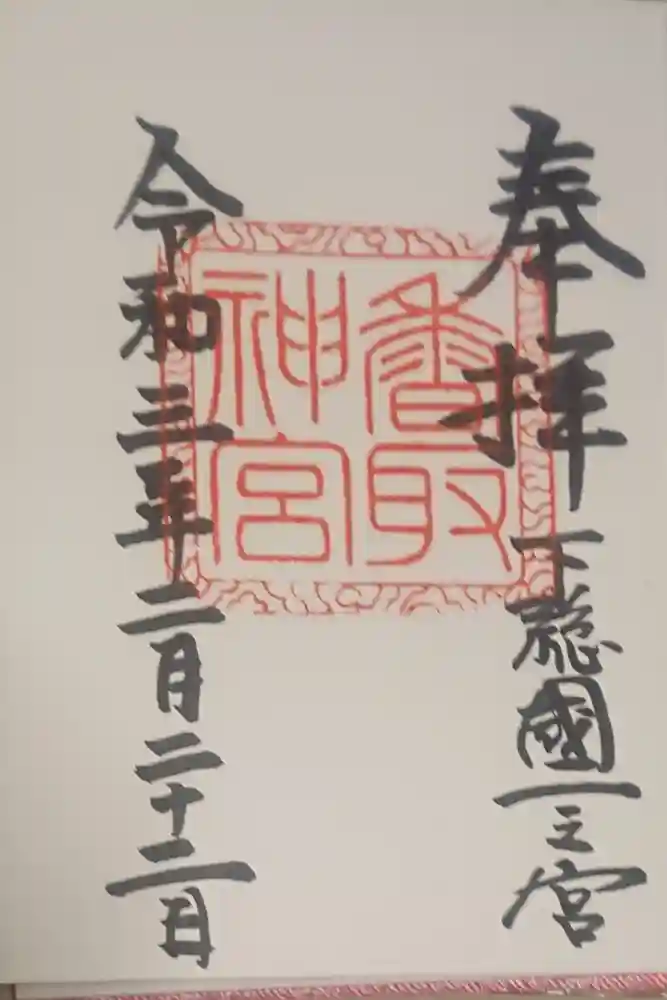 奉拝
下総國一之宮
香取
神宮
令和三年二月二十二日